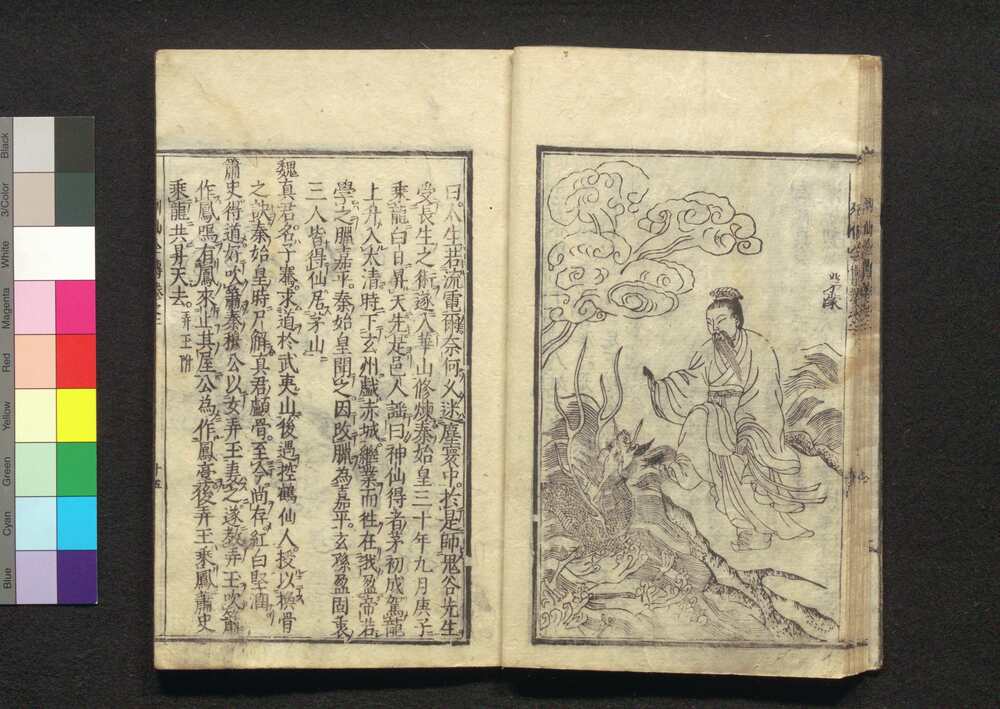 茅濛
曰人生若流電爾奈何久迷塵寰中於是師鬼谷先生
受長生之術遂入華山修煉秦始皇三十年九月庚子
乘龍白日昇天先是邑人謡曰神仙得者茅初成駕龍
上升入太清時下玄州戲赤城繼業而往在我盈帝若
學之臘嘉平秦始皇聞之因改臘為嘉平玄孫盈固衷
三人皆得仙居茅山
魏真君名子騫求道於武夷山後遇控鶴仙人授以換骨
之訣秦始皇時尸解真君顱骨至今尚存紅白堅潤
蕭史得道好吹簫秦穆公以女弄玉妻之遂教弄玉吹簫
作鳳鳴有鳳來止其屋公為作鳳臺後弄玉乘鳳蕭史
乘龍共升天去弄玉附
十五
Black
3/Color
White
Magenta
Red
Yellow
Green
Cyan
Blue